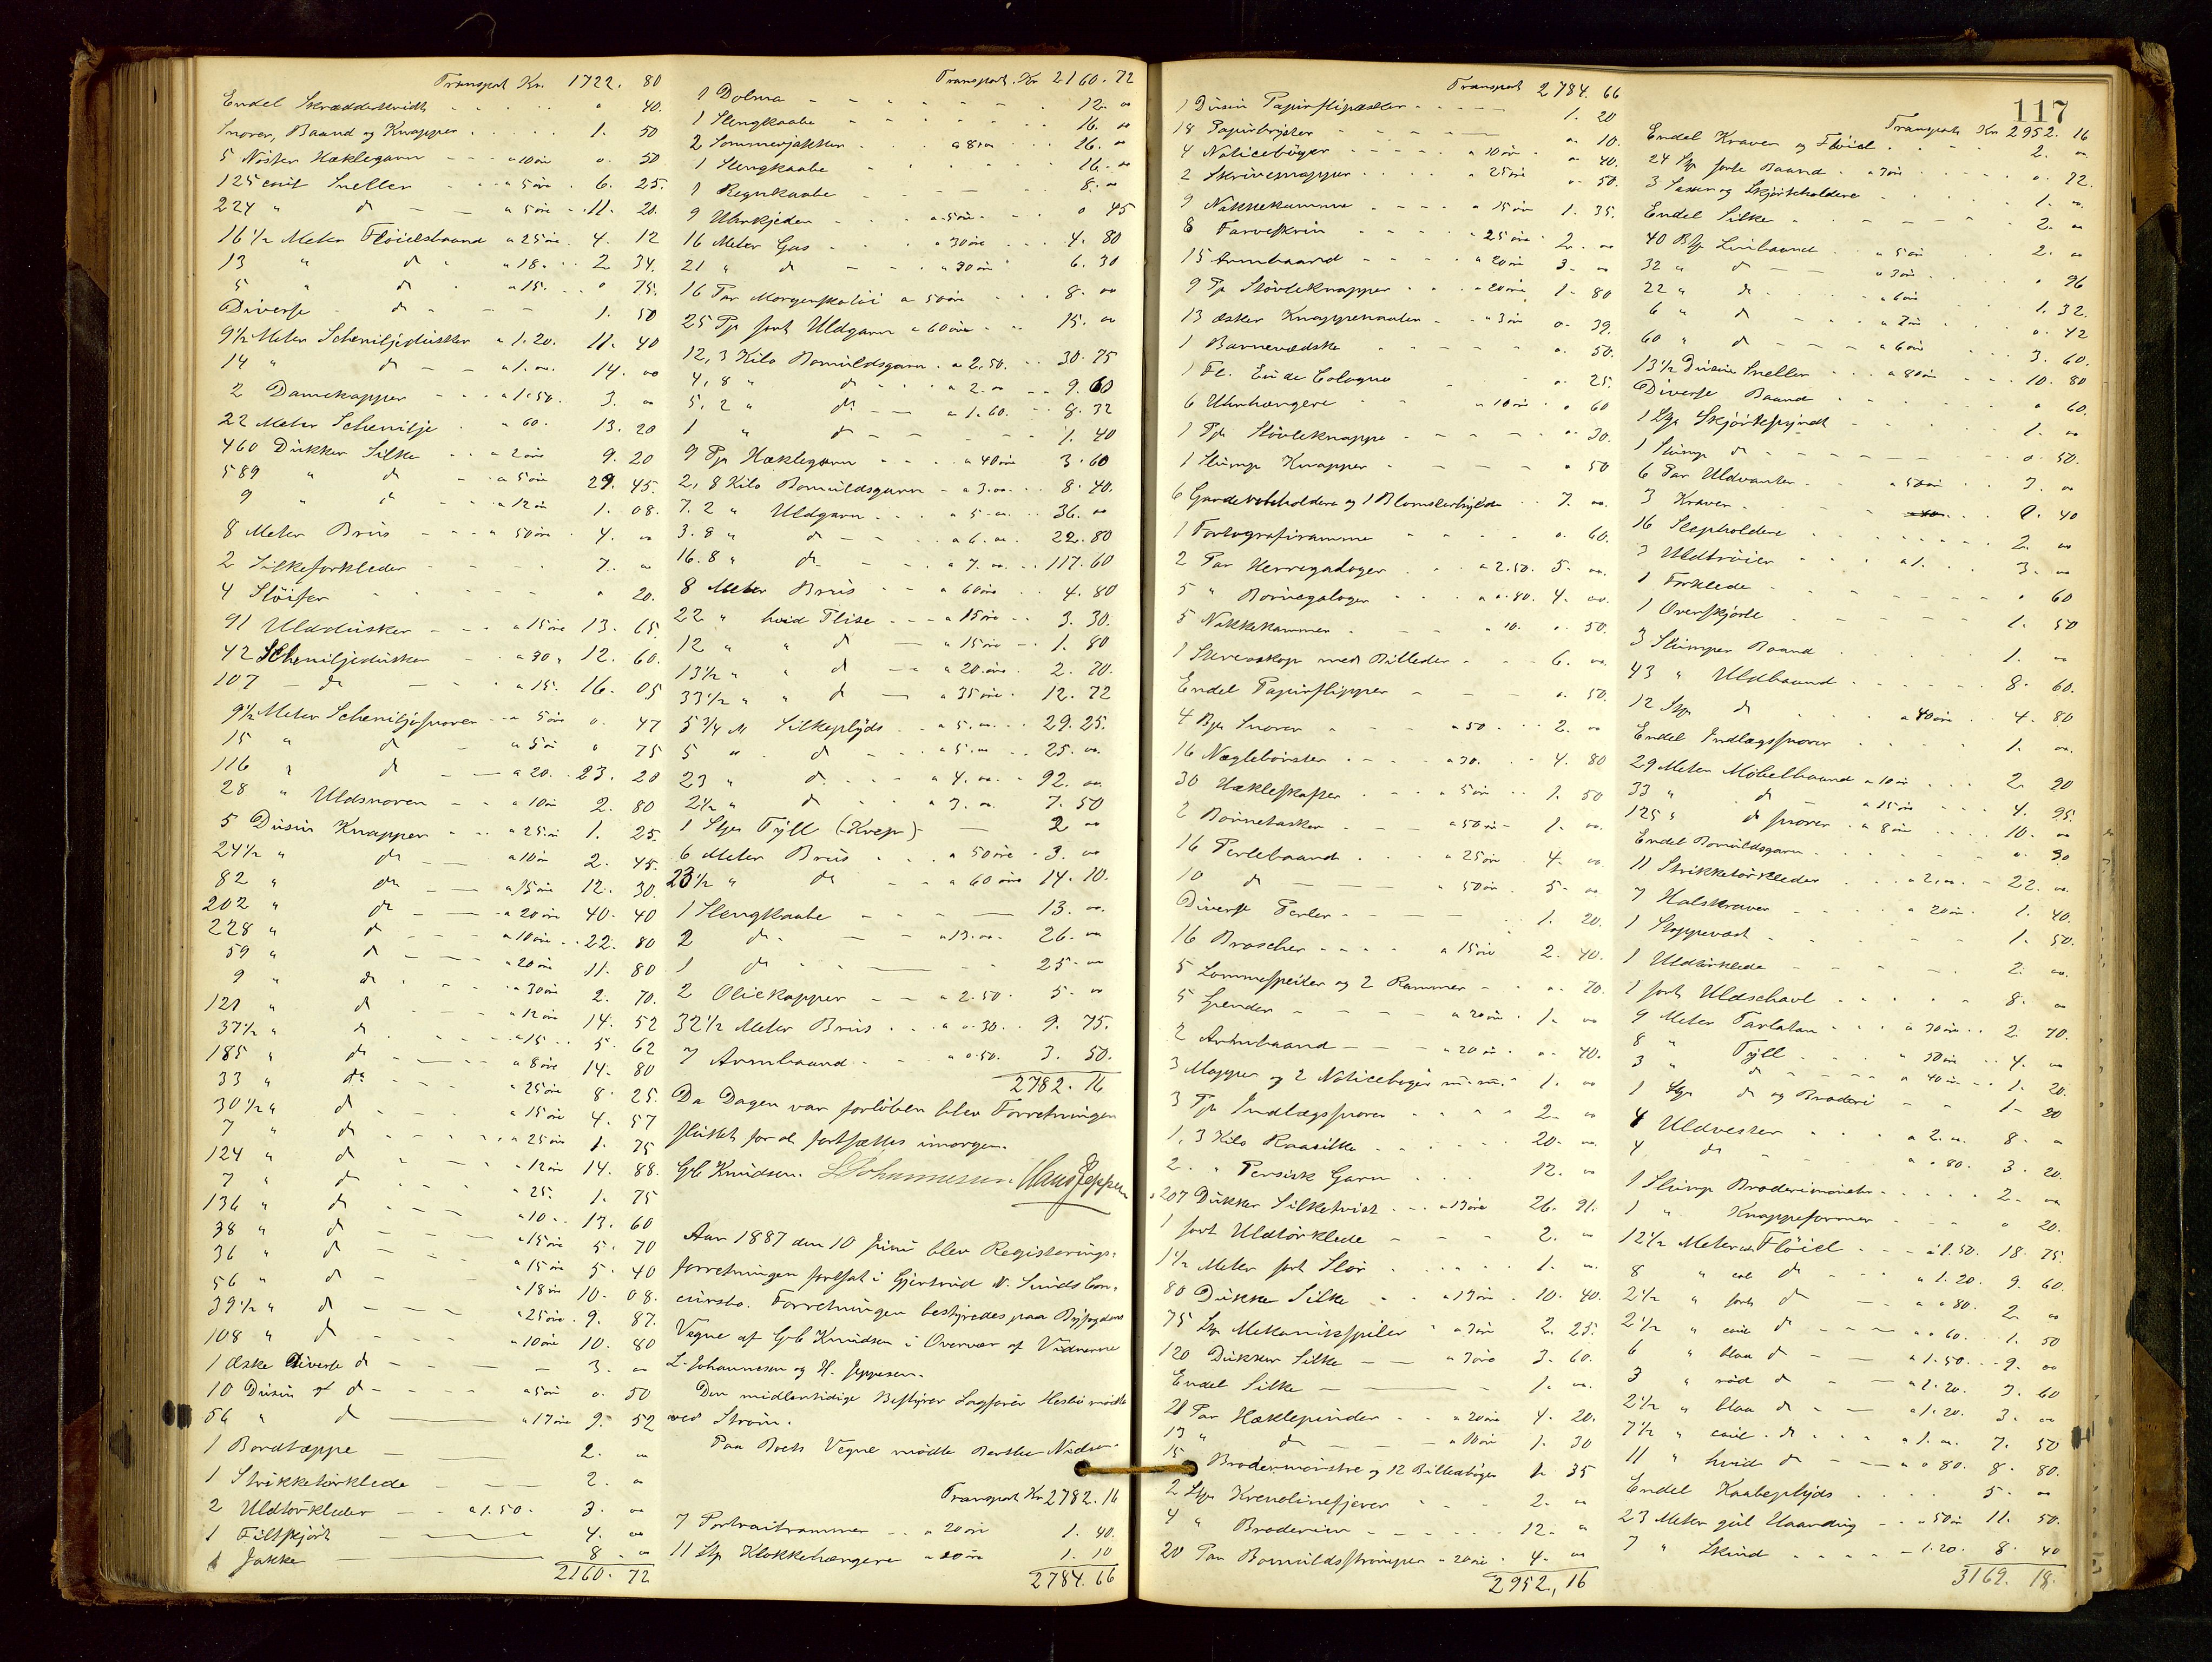 Transport Kr. 1722. 80
Endel Skrædderkridt - - " 40.
Snorer, Baand og Knapper - - 1. 50
5 Nöster Hæklegarn - - a 10 öre 0. 50
125 Sneller - - a 5 öre 6. 25.
224 " d - - a 5 öre 11. 20.
16 1/2 Meter Flöielsbaand a 25 öre 4. 12
13 " d " a 18. 2. 34.
5 " d a 15. 0 75.
Diverse d - - 1. 50
9 1/2 Meter Scheniljedusker a 1.20. 11. 40
14 " d - a 1.00. 14. 00
2 Damekapper - - a 1.50. 3. 00
22 Meter Schenilje - a 60. 13. 20
460 Dukker Silke - - a 2 öre 9. 20
589 " d - a 5 öre 29. 45.
9 " d - a 12 öre 1. 08.
8 Meter Brus - - a 50 öre 4. 00
2 Silkeforklæder - - 7. 00
4 Slöifer - - " 20.
91 Ulddusker - - a 15 öre 13. 65.
42 Scheniljedusker - a 30 " 12. 60.
107 - d - - a 15. 16. 05
9 1/2 Meter Scheniljesnorer - a 5 öre 0. 47
15 " d - a 5 öre 0 75
116 " d - a 20. 23. 20
28 " Uldsnorer - - a 10 öre 2. 80
5 Dusin Knapper - - a 25 öre 1. 25.
24 1/2 " d - - a 10 öre 2. 45.
82 " d - - a 15 öre 12. 30.
202 " d - - a 20 öre 40. 40
228 " d - - a 10 öre 22. 80
59 " d - - a 20 öre 11. 80
9 " d - - a 30 öre 2. 70.
121 " d - - a 12 öre 14. 52
37 1/2 " d - - a 15 5. 62
185 " d - - a 8 öre 14. 80
33 " d - - a 25 öre 8. 25.
30 1/2 " d - - a 15 öre 4. 57
7 " d - - a 25 öre 1. 75
124 " d - - a 12 öre 14. 88.
7 " d - - a 25. 1. 75
136 " d - - a 10 13. 60
38 " d - - a 15 öre 5. 70
36 " d - - a 15 öre 5. 40
56 " d - - a 18 öre 10. 08.
39 1/2 " d - - a 25 öre 9. 87.
108 " d - - a 10 öre 10. 80
1 Æske Diverse d - - 3. 00
10 Dusin d - - a 5 öre 0. 50
56 " d - a 17 öre 9. 52
1 Bordtæppe - 2. 00
1 Strikketörklede - 2. 00
2 Uldtörkleder - - a 1.50. 3. 00
1 Filtskjört - 4. 00
1 Jakke - 8. 00
2160. 72
Transport. Kr 2160. 72
1 Dolma - - 12. 00
1 Slengkaabe - - 16. 00
2 Sommerjakker - a 8.00 16. 00
1 Slengkaabe - 16. 00
1 Regnkaabe - 8. 00
9 Uhrkjeder - - a 5 öre 0 45
16 Meter Gas - - a 30 öre 4. 80
21 " d - - a 30 öre 6. 30
16 Par Morgenskotöi a 50 öre 8. 00
25 Pp sort Uldgarn a 60 öre 15. 00
12,3 Kilo Bomuldsgarn a 2.50. 30. 75
4,8 " d - a 2.00 9. 60
5,2 " d - a 1.60. 8. 32
1 " d - - 1. 40
9 Pp Hæklegarn - - a 40 öre 3. 60
2,8 Kilo Bomuldsgarn - a 3.00 8. 40.
7.2 " Uldgarn - - a 5.00 36. 00
3.8 " d - - a 6.00 22. 80
16.8 " d - - a 7.00 117. 60
8 Meter Brus - - a 60 öre 4. 80
22 " hvid Flise - - a 15 öre 3. 30.
12 " " d - a 15 öre 1. 80
13 1/2 " " d - a 20 öre 2. 70.
33 1/2 " " d - a 35 öre 12. 72
5 3/4 M Silkeplyds - a 5.00 29. 25.
5 " d - - a 5.00 25. 00.
23 " d - - a 4.00 92. 00
2 1/2 " d - - a 3.00 7. 50
1 Stk Tyll (Krep) - 2 00
6 Meter Brus - - a 50 öre 3. 00
23 1/2 " d - - a 60 öre 14. 10.
1 Slengkaabe - - 13. 00.
2 d - - a 13.00 26. 00
1 d - - 25. 00
2 Oliekapper - - a 2.50. 5. 00
32 1/2 Meter Brus - - a 0.30 9. 75.
7 Armbaand - - a 0.50. 3. 50.
2782. 16
Da Dagen var forlöben blev Forretningen
sluttet for at fortsættes imorgen.
Gb Knudsen. L Johannesen. Hans Jeppesen
Aar 1887 den 10 Juni blev Registerings-
forretningen fortsat i Gjertrud N. Sunds Con-
cursbo. Forretningen bestyredes paa Byfogdens
Vegne af Gb Knudsen i Overvær af Vidnerne
L. Johannesen og H. Jeppesen.
Den midlertidige Bestyrer Sagförer Hesbö mödte
ved Ström.
Paa Boets Vegne mödte Berthe
Transport Kr 2782. 16
7 Portraitrammer - - a 20 öre 1. 40.
11 Stk Klokkehængere a 10 öre 1. 10
2784. 66
Transport 2784. 66
1 Dusin Papirflipæsker - - 1. 20
18 Papirbryster - - 0. 10.
4 Noticeböger - - a 10 öre 0. 40.
2 Skrivemapper - - a 25 öre 0. 50.
9 Nakkekamme - - a 15 öre 1. 35.
8 Farveskrin - - a 25 öre 2. 00
15 Armbaand - - a 20 öre 3. 00
9 Pp Stövleknapper - - a 20 öre 1. 80
13 æsker Knappenaaler - - a 3 öre 0. 39.
1 Barnevædske - - 0. 50.
1 Fl. Eau de Cologne - - 0. 25.
6 Uhrhængere - - a 10 öre 0 60
1 Pk Stövleknappe - - 0. 30.
1 Slump Knapper - - 0 50
6 Garderobeholdere og 1 Blomsterhylde 7. 00.
1 Fortografiramme - - 0. 60.
2 Par Herregaloger - - a 2.50. 5. 00
5 " Börnegaloger - - a 0.80. 4. 00.
5 Nakkekammer - - a 10. 0. 50.
1 Stereoskop med Billeder - - 6. 00
Endel Papirflipper - - 0. 50.
4 Bp Snorer - - a 50 2. 00
16 Neglebörster - - a 30. 4. 80
30 Hækleskafter - - a 5 öre 1. 50
2 Börnetasker - - a 50 öre 1. 00.
16 Perlebaand - - a 25 öre 4. 00
10 d - - a 50 öre 5. 00
Diverse Perler - - 1. 20.
16 Broscher - - a 15 öre 2. 40.
5 Lommespeiler og 2 Rammer - - 0. 70.
5 Spender - - a 20 öre 1. 00
2 Armbaand - - a 20 öre 0. 40.
3 Mapper og 2 Noticeböger m.m. 1. 00
3 Pk Indlægssnorer - - 2. 00
1,3 Kilo Raasilke - - 20. 00
2. " Persisk Garn - - 12. 00
207 Dukker Silketvist - - a 13 öre 26. 91.
1 sort Uldtörklede - - 2. 00
1 1/2 Meter sort Slör - - 1. 00
80 Dukke Silke - - a 13 öre 10. 40.
75 Stk Mekanikspiler a 3 öre 2. 25.
120 Dukker Silke - a 3 öre 3. 60.
Endel Silke - 1. 00.
21 Par Hæklepinder - - a 20 öre 4. 20.
13 " d - - a 10 öre 1. 30
15 Brodermönstre og 12 Billedböger 1. 35
2 Stk Krenolinefjerer - - 2. 00
4 " Broderier - - 12. 00
20 Par Bomuldsströmper a 20 öre 4. 00
2952, 16
117
Transport Kr 2952. 16
Endel Kraver og Flöiel - - 2. 00
24 Stk sorte Baand - a 3 öre 0. 72.
3 Saxer og Skjörteholdere - 1. 00.
Endel Silke - - 2. 00
40 Bp Linbaand - a 5 öre 2. 00
32 " d - - a 3 öre 0 96
22 " d - - a 6 öre 1. 32.
6 " d - - a 7 öre 0. 42
60 " d - - a 6 öre 3. 60.
13 1/2 Dusin Sneller - - a 80 öre 10. 80
Diverse Baand - - 0 60.
1 Stk Skjörtepyndt - - 1. 00
1 Slump d - - 0. 50.
6 Par Uldvanter - - a 50 öre 3. 00
3 Kraver - - 0. 40
16 Slepholdere - - 2. 00
3 Uldtröier - - a 1. 3. 00
1 Forklede - - 0 60
1 Overskjorte - - 1. 50
3 Slumper Baand - - 1. 00
43 " Uldbaand - - 8. 60.
12 Stk d - - a 40 öre 4. 80
Endel Indlægssnorer - - 1. 00.
29 Meter Möbelbaand a 10 öre 2. 90
33 " d a 15 öre 4. 95.
125 " d snorer - a 8 öre 10. 00
Endel Bomuldsgarn - - 0. 30
11 Strikketörkleder - - a 2.00 22. 00.
7 Halskraver - - a 20 öre 1. 40.
1 Stoppevæst - - 1. 50.
1 Uldtörklede - - 2. 00.
1 sort Uldschavl - - 8. 00
9 Meter Tarlatan - - a 30 öre 2. 70.
8 " Tyll - - a 50 öre 4. 00
3 " d - - a 40 öre 1. 20.
1 Stk d og Broderi - - 1. 20
4 Uldvester - - a 2.00 8. 00
4 d - - a 0.80. 3. 20.
1 Slump Broderimönster - - 2. 00
1 " Knappeformer - - 0 20.
12 1/2 Meter Flöiel - - a 1.50. 18. 75.
8 " d - - a 1.20. 9. 60.
2 1/2 " sort d - - a 0.80. 2. 00
2 1/2 " d - - a 0.60. 1. 50
6 " blaa d - - a 1.50. 9. 00
3 " röd d - - a 1.20. 3. 60
2 1/2 " blaa d - - a 1.20. 3. 00
7 1/2 " d - - a 1.00. 7. 50
11 " hvid d - - a 0.80. 8. 80.
Endel Kaabeplyds - - 5. 00
23 Meter gul - - a 50 öre 11. 50.
7 " Skind - - 1.20. 8. 40
3169. 18.